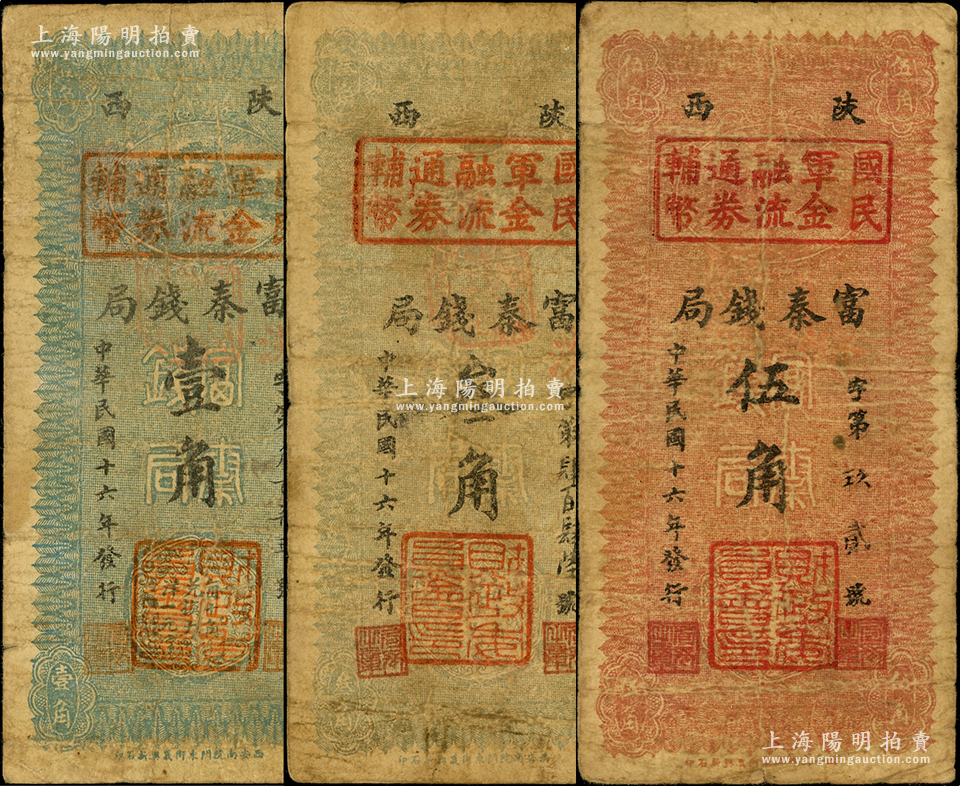 上海陽明拍賣
www.yangmingauction.com
壹角
西
陝
國民
軍金
融流
通券
輔幣
富秦錢局
壹角
中華民國十六年發行
壹角
西安南院門東街義興新石印
西
陝
國民
軍金
融流
通券
輔幣
富秦錢局
叁角
中華民國十六年發行
號
上海陽明拍賣
www.yangmingauction.com
伍角
伍角
陝
西
國民
軍金
融流
通券
輔幣
富秦錢局
伍角
字第玖貳號
中華民國十六年發行
上海陽明拍賣
www.yangmingauction.com